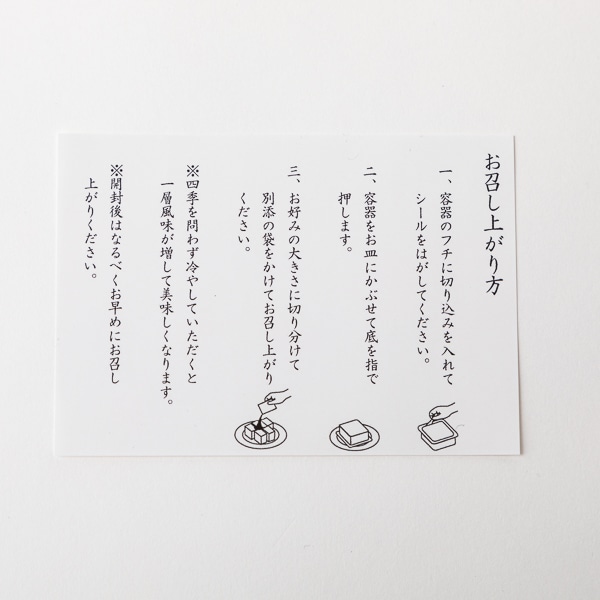 お召し上がり方
一、容器のフチに切り込みを入れて
シールをはがしてください。
二、容器をお皿にかぶせて底を指で
押します。
三、お好みの大きさに切り分けて
別添の袋をかけてお召し上がり
ください。
※四季を問わず冷やしていただくと
一層風味が増して美味しくなります。
※開封後はなるべくお早めにお召し
上がりください。